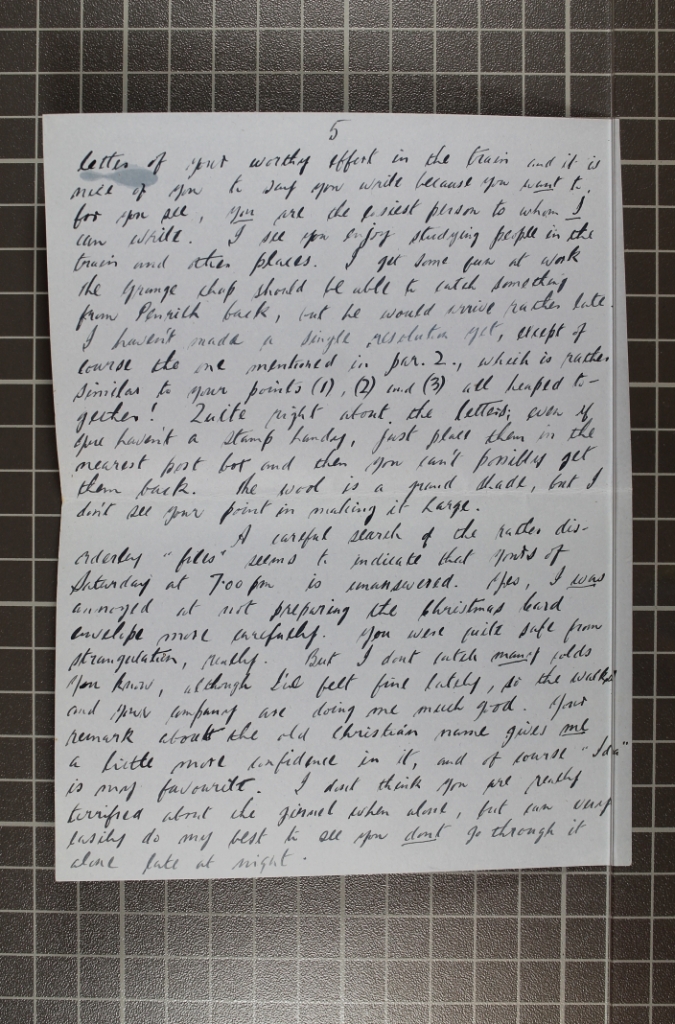 5
letter of your worthy effort in the train and it is
nice of you to say you write because you want to,
for you see, you are the easiest person to whom I
can write. I see you enjoy studying people in the
train and other places. I get some fun at work
the Grange chap should be able to catch something
from Penrith back, but he would arrive rather late.
I haven't made a single resolution yet, except of
course the one mentioned in par. 2., which is rather
similar to your points (1), (2) and (3) all heaped to-
gether! Quite right about the letters; even if
you haven't a stamp handy, just place them in the
nearest post box and then you can't possibly get
them back. The wool is a grand shade, but I
don't see your point in making it large.
A careful search of the rather dis-
orderly "files" seems to indicate that yours of
Saturday at 7.00 pm is unanswered. Yes, I was
annoyed at not preparing the Christmas Card
envelope more carefully. You were quite safe from
strangulation, really. But I dont catch many colds
you know, although I've felt fine lately, so the walks
and your company are doing me much good. Your
remark about the old Christian name gives me
a little more confidence in it, and of course "Ida"
is my favourite. I dont think you are really
terrified about the ginnel when alone, but can very
easily do my best to see you dont go through it
alone late at night.